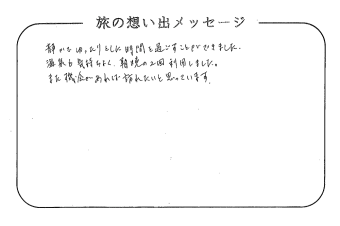 旅の想い出メッセージ
静かでゆったりとした時間を過ごすことができました。
温泉も気持ちよく、朝晩の2回利用しました。
また機会があれば訪れたいと思っています。